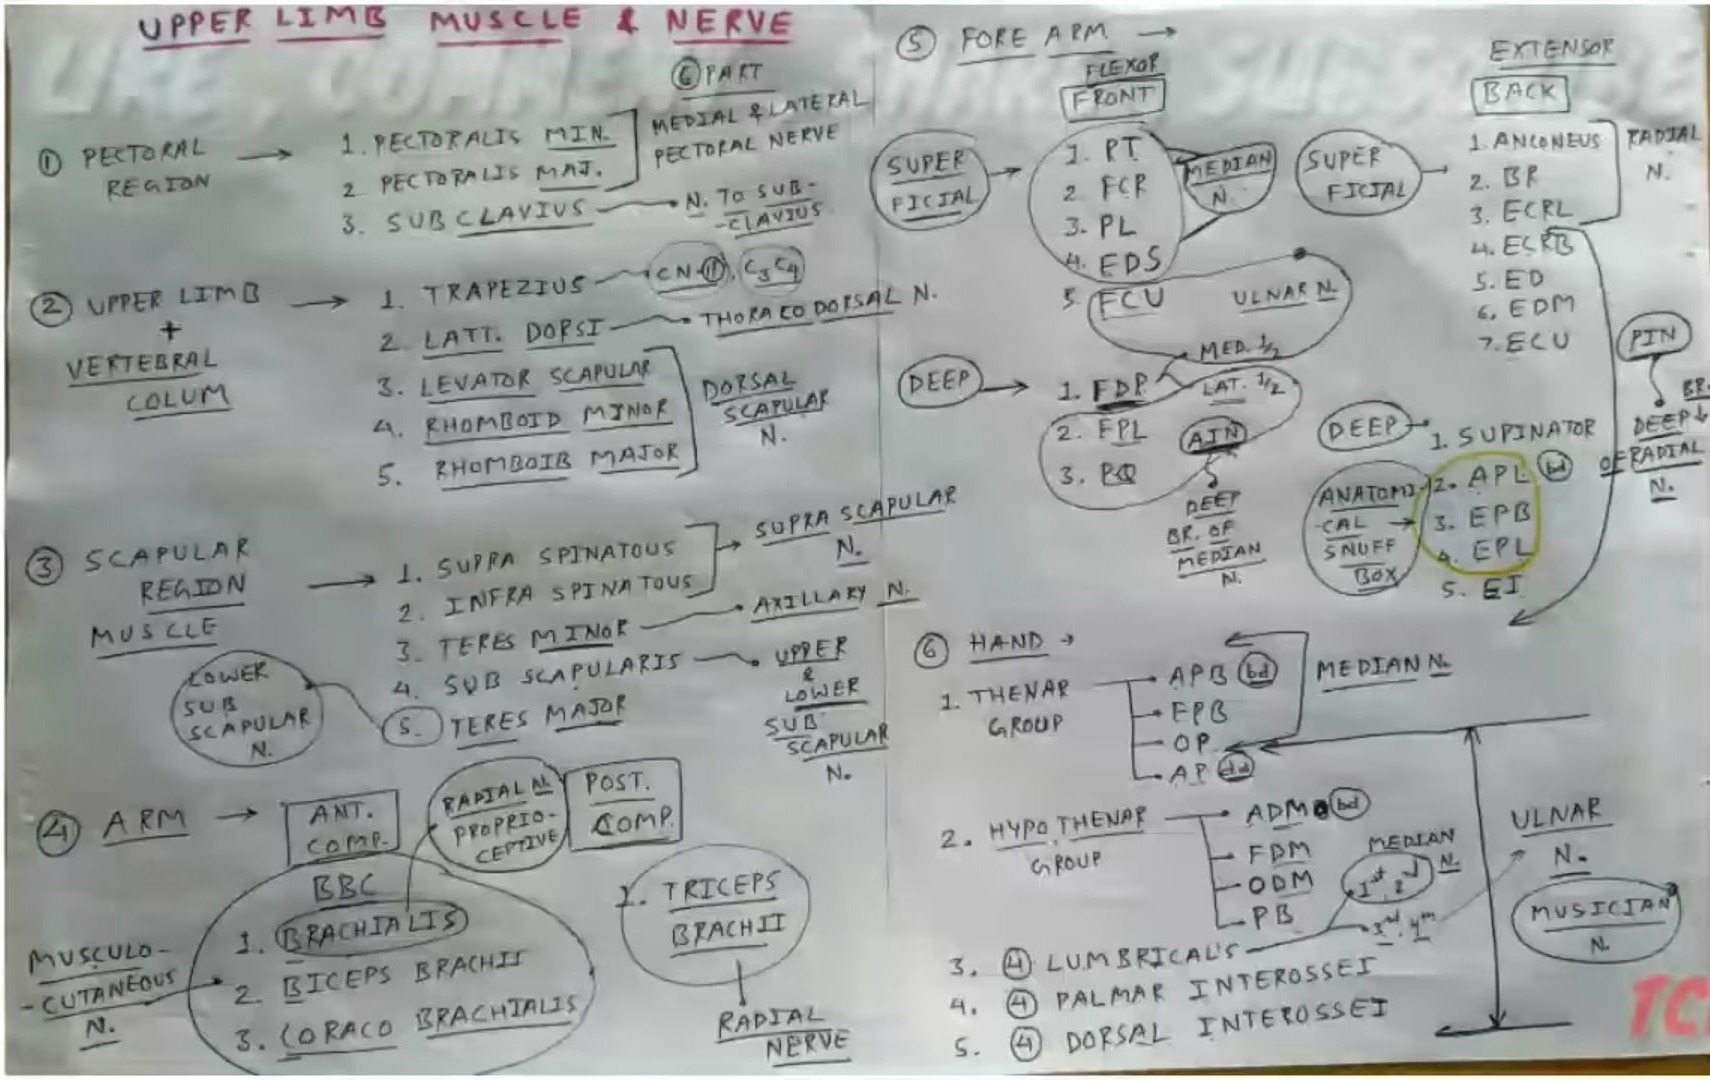 UPPER LIMB MUSCLE & NERVE
⑥ PART
① PECTORAL REGION →
1. PECTORALIS MIN.
2 PECTORALIS MAJ.
MEDIAL & LATERAL
PECTORAL NERVE
3. SUBCLAVIUS
N. TO SUB-
-CLAVIUS
② UPPER LIMB
+
VERTEBRAL
COLUM
→
1. TRAPEZIUS
CN-⑪, C3 C4
2. LATT. DORSI
THORACO DORSAL N.
3. LEVATOR SCAPULAR
4. RHOMBOID MINOR
5. RHOMBOIB MAJOR
DORSAL
SCAPULAR
N.
③ SCAPULAR
REGION
MUSCLE
→
1. SUPRA SPINATOUS
2. INFRA SPINATOUS
SUPRA SCAPULAR
N.
3. TERES MINOR
AXILLARY N.
4. SUB SCAPULARIS
UPPER
&
LOWER
SUB
SCAPULAR
N.
5. TERES MAJOR
LOWER
SUB
SCAPULAR
N.
④ ARM →
ANT.
COMP.
RADIAL N.
PROPRIO-
CEPTIVE
POST.
COMP.
BBC
1. BRACHIALIS
2. BICEPS BRACHII
3. CORACO BRACHIALIS
MUSCULO-
-CUTANEOUS
N.
1. TRICEPS
BRACHII
RADIAL
NERVE
⑤ FORE ARM →
FLEXOR
FRONT
SUPER
FICIAL
→
1. PT
2. FCR
3. PL
4. EDS
MEDIAN
N.
5 FCU
ULNAR N.
DEEP →
1. FDP
MED. ½
LAT. ½
2. FPL
3. PQ
AIN
DEEP
BR. OF
MEDIAN
N.
EXTENSOR
BACK
SUPER
FICIAL
→
1. ANCONEUS
2. BR
3. ECRL
RADIAL
N.
4. ECRB
5. ED
6. EDM
7. ECU
PIN
BR.
DEEP ↓
OF RADIAL
N.
DEEP →
1. SUPINATOR
2. APL bd
3. EPB
4. EPL
5. EI
ANATOMI-
-CAL →
SNUFF
BOX
⑥ HAND →
1. THENAR
GROUP
APB bd
FPB
OP
AP dd
MEDIAN N.
2. HYPOTHENAR
GROUP
ADM bd
FDM
ODM
PB
MEDIAN
N.
1st, 2nd
3rd, 4th
ULNAR
N.
MUSICIAN
N.
3. ④ LUMBRICAL'S
4. ④ PALMAR INTEROSSEI
5. ④ DORSAL INTEROSSEI
LIKE, COMMENT, SHARE, SUBSCRIBE